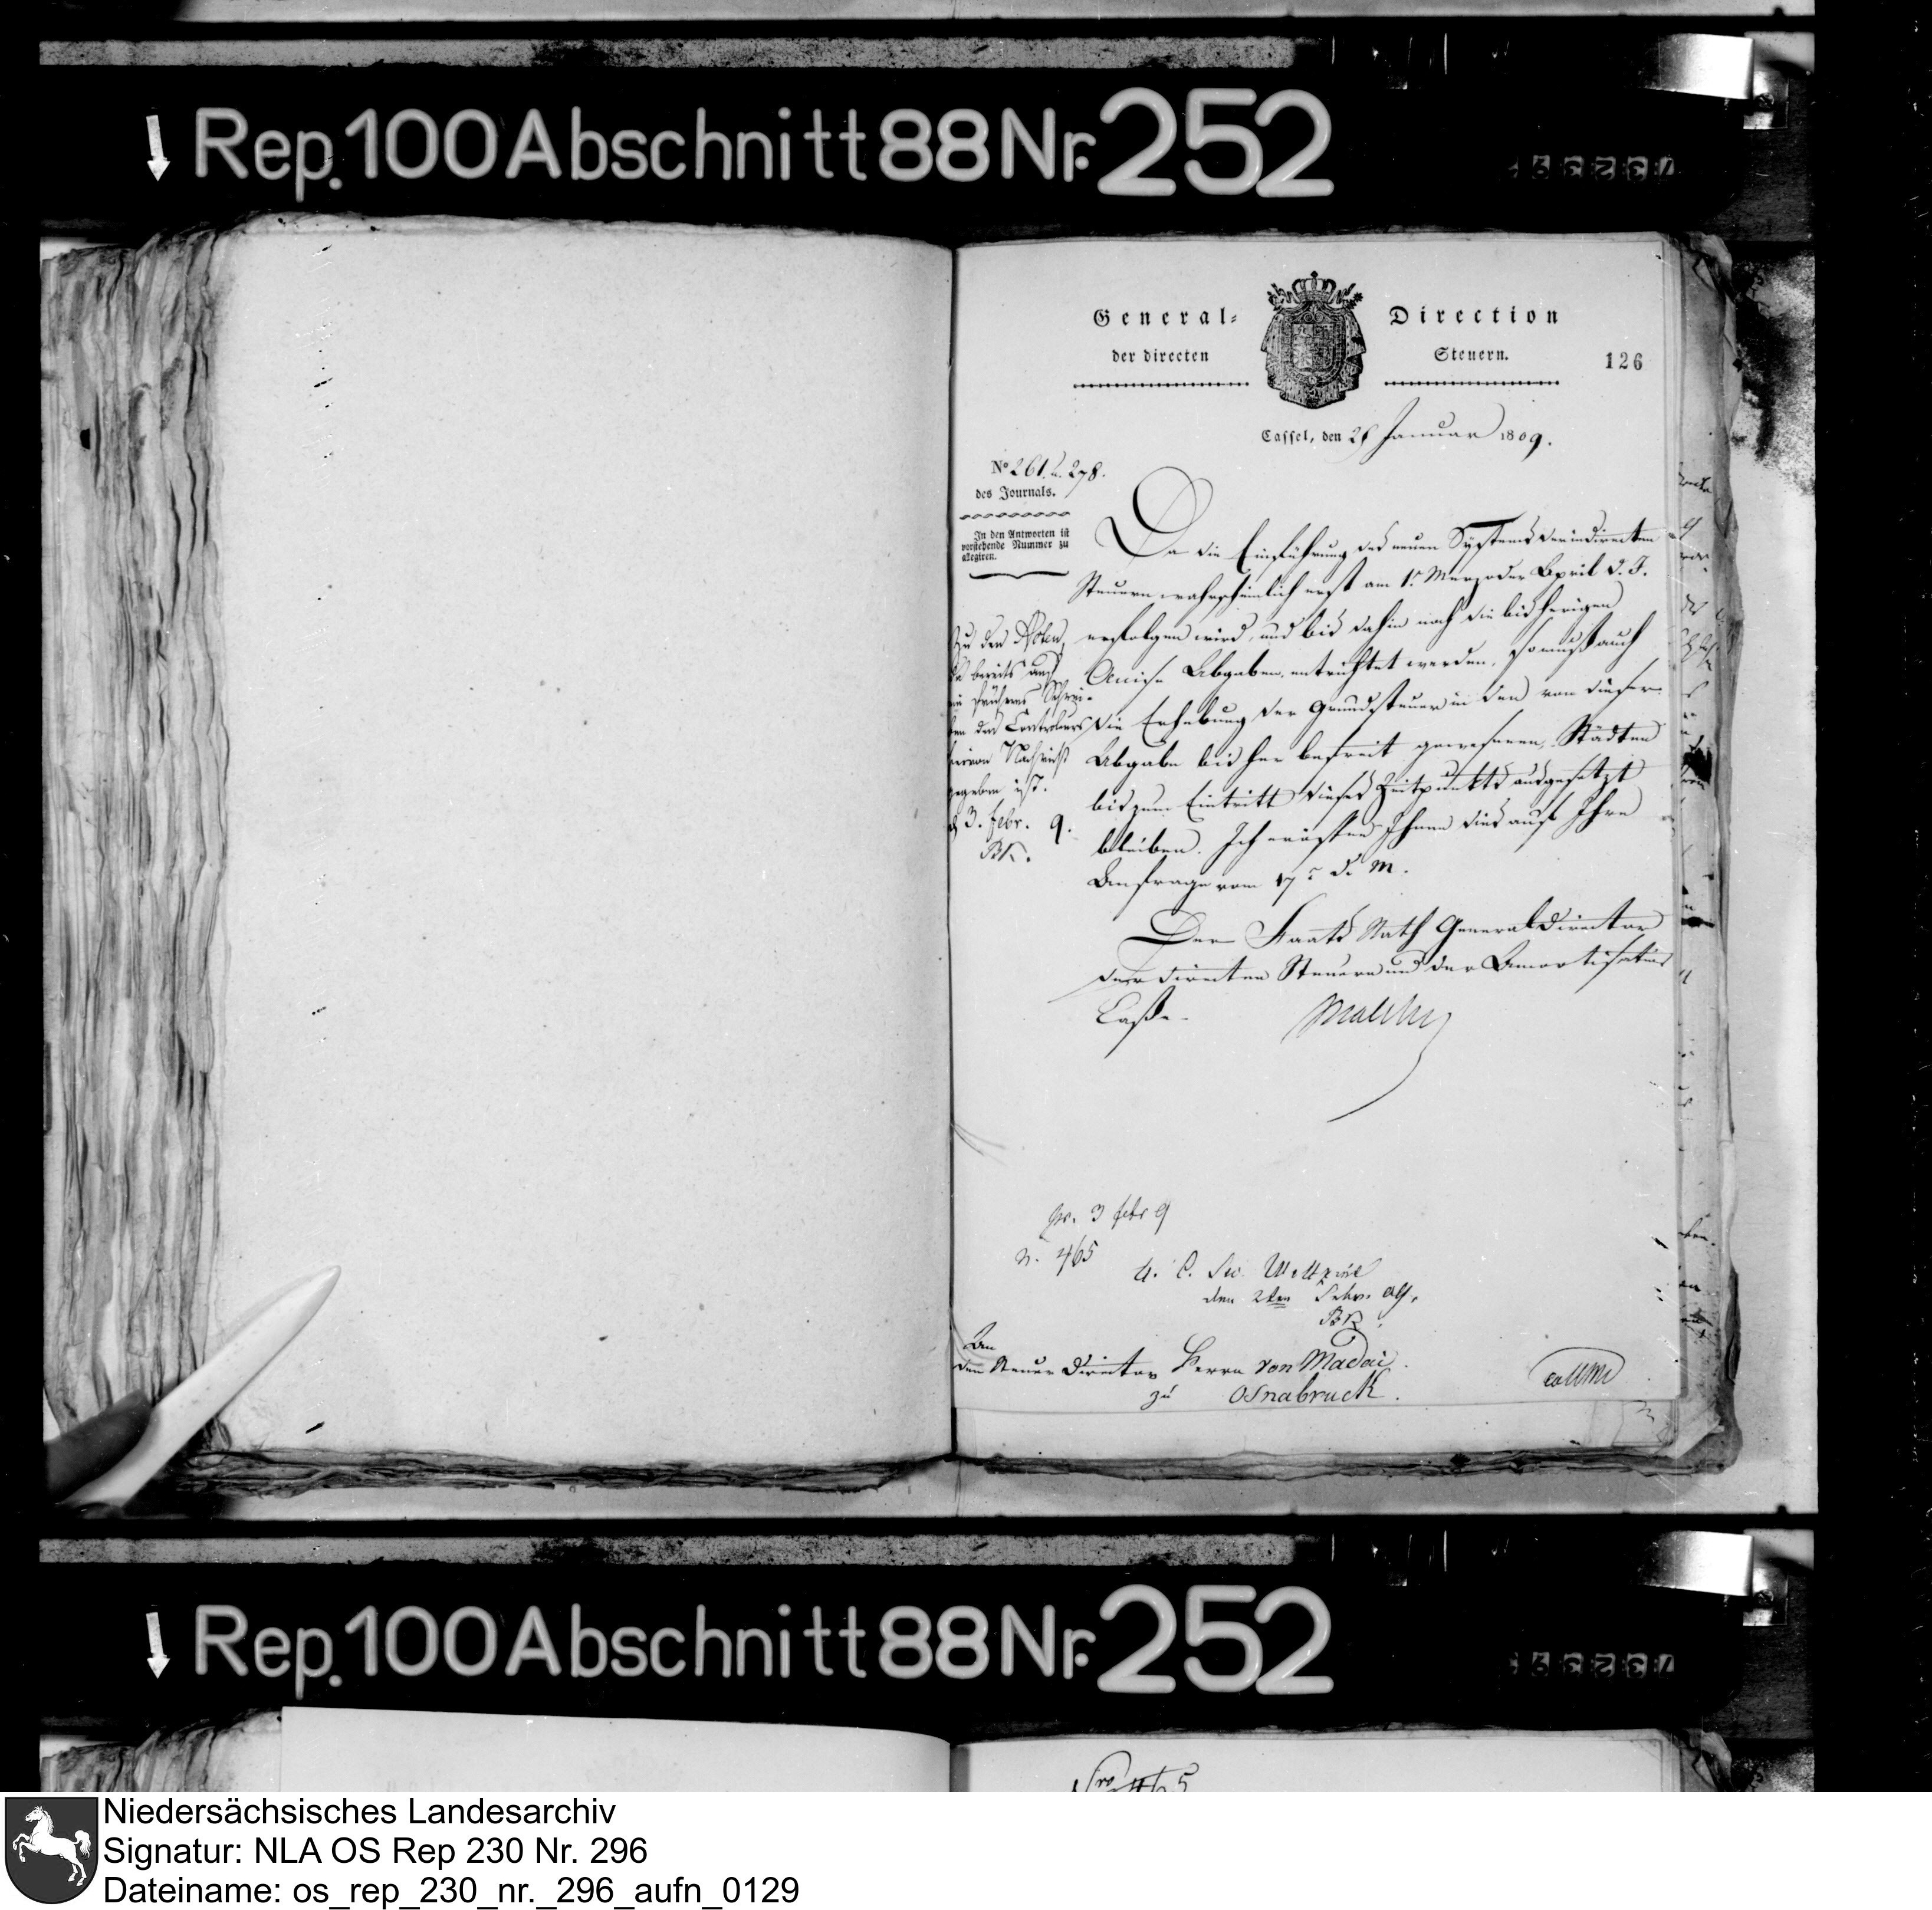 Rep. 100 Abschnitt 88 Nr. 252
General- Direction
der directen Steuern.
126
Cassel, den 28 Januar 1809.
No 261. u. 278.
des Journals.
In den Antworten ist
vorstehende Nummer zu
allegiren.
Da die Einführung des neuen Systems der indirecten
Steuern wahrscheinlich erst am 1r Merz oder April d. J.
erfolgen wird, und bis dahin noch die bisherigen
Accise Abgaben entrichtet werden, so muß auch
die Erhebung der Grundsteuer in den von dieser
Abgabe bisher befreit gewesenen Städten
bis zum Eintritt dieses Zeitpunkts ausgesetzt
bleiben. Ich eröffne Ihnen dies auf Ihre
Anfrage vom 17r d. M.
Zu den Acten,
da bereits auf
ein früheres Schrei-
ben des Controleurs
hievon Nachricht
gegeben ist.
d 3. febr. 9.
BK.
Der Staats Rath General Director
der directen Steuern und der Amortisations
Casse.
Malchus
pr. 3 febr 9
n. 465
den 2ten Febr. 09.
An
den Steuer Director Herrn von Madai
zu Osnabruck.
Rep. 100 Abschnitt 88 Nr. 252
Niedersächsisches Landesarchiv
Signatur: NLA OS Rep 230 Nr. 296
Dateiname: os_rep_230_nr._296_aufn_0129